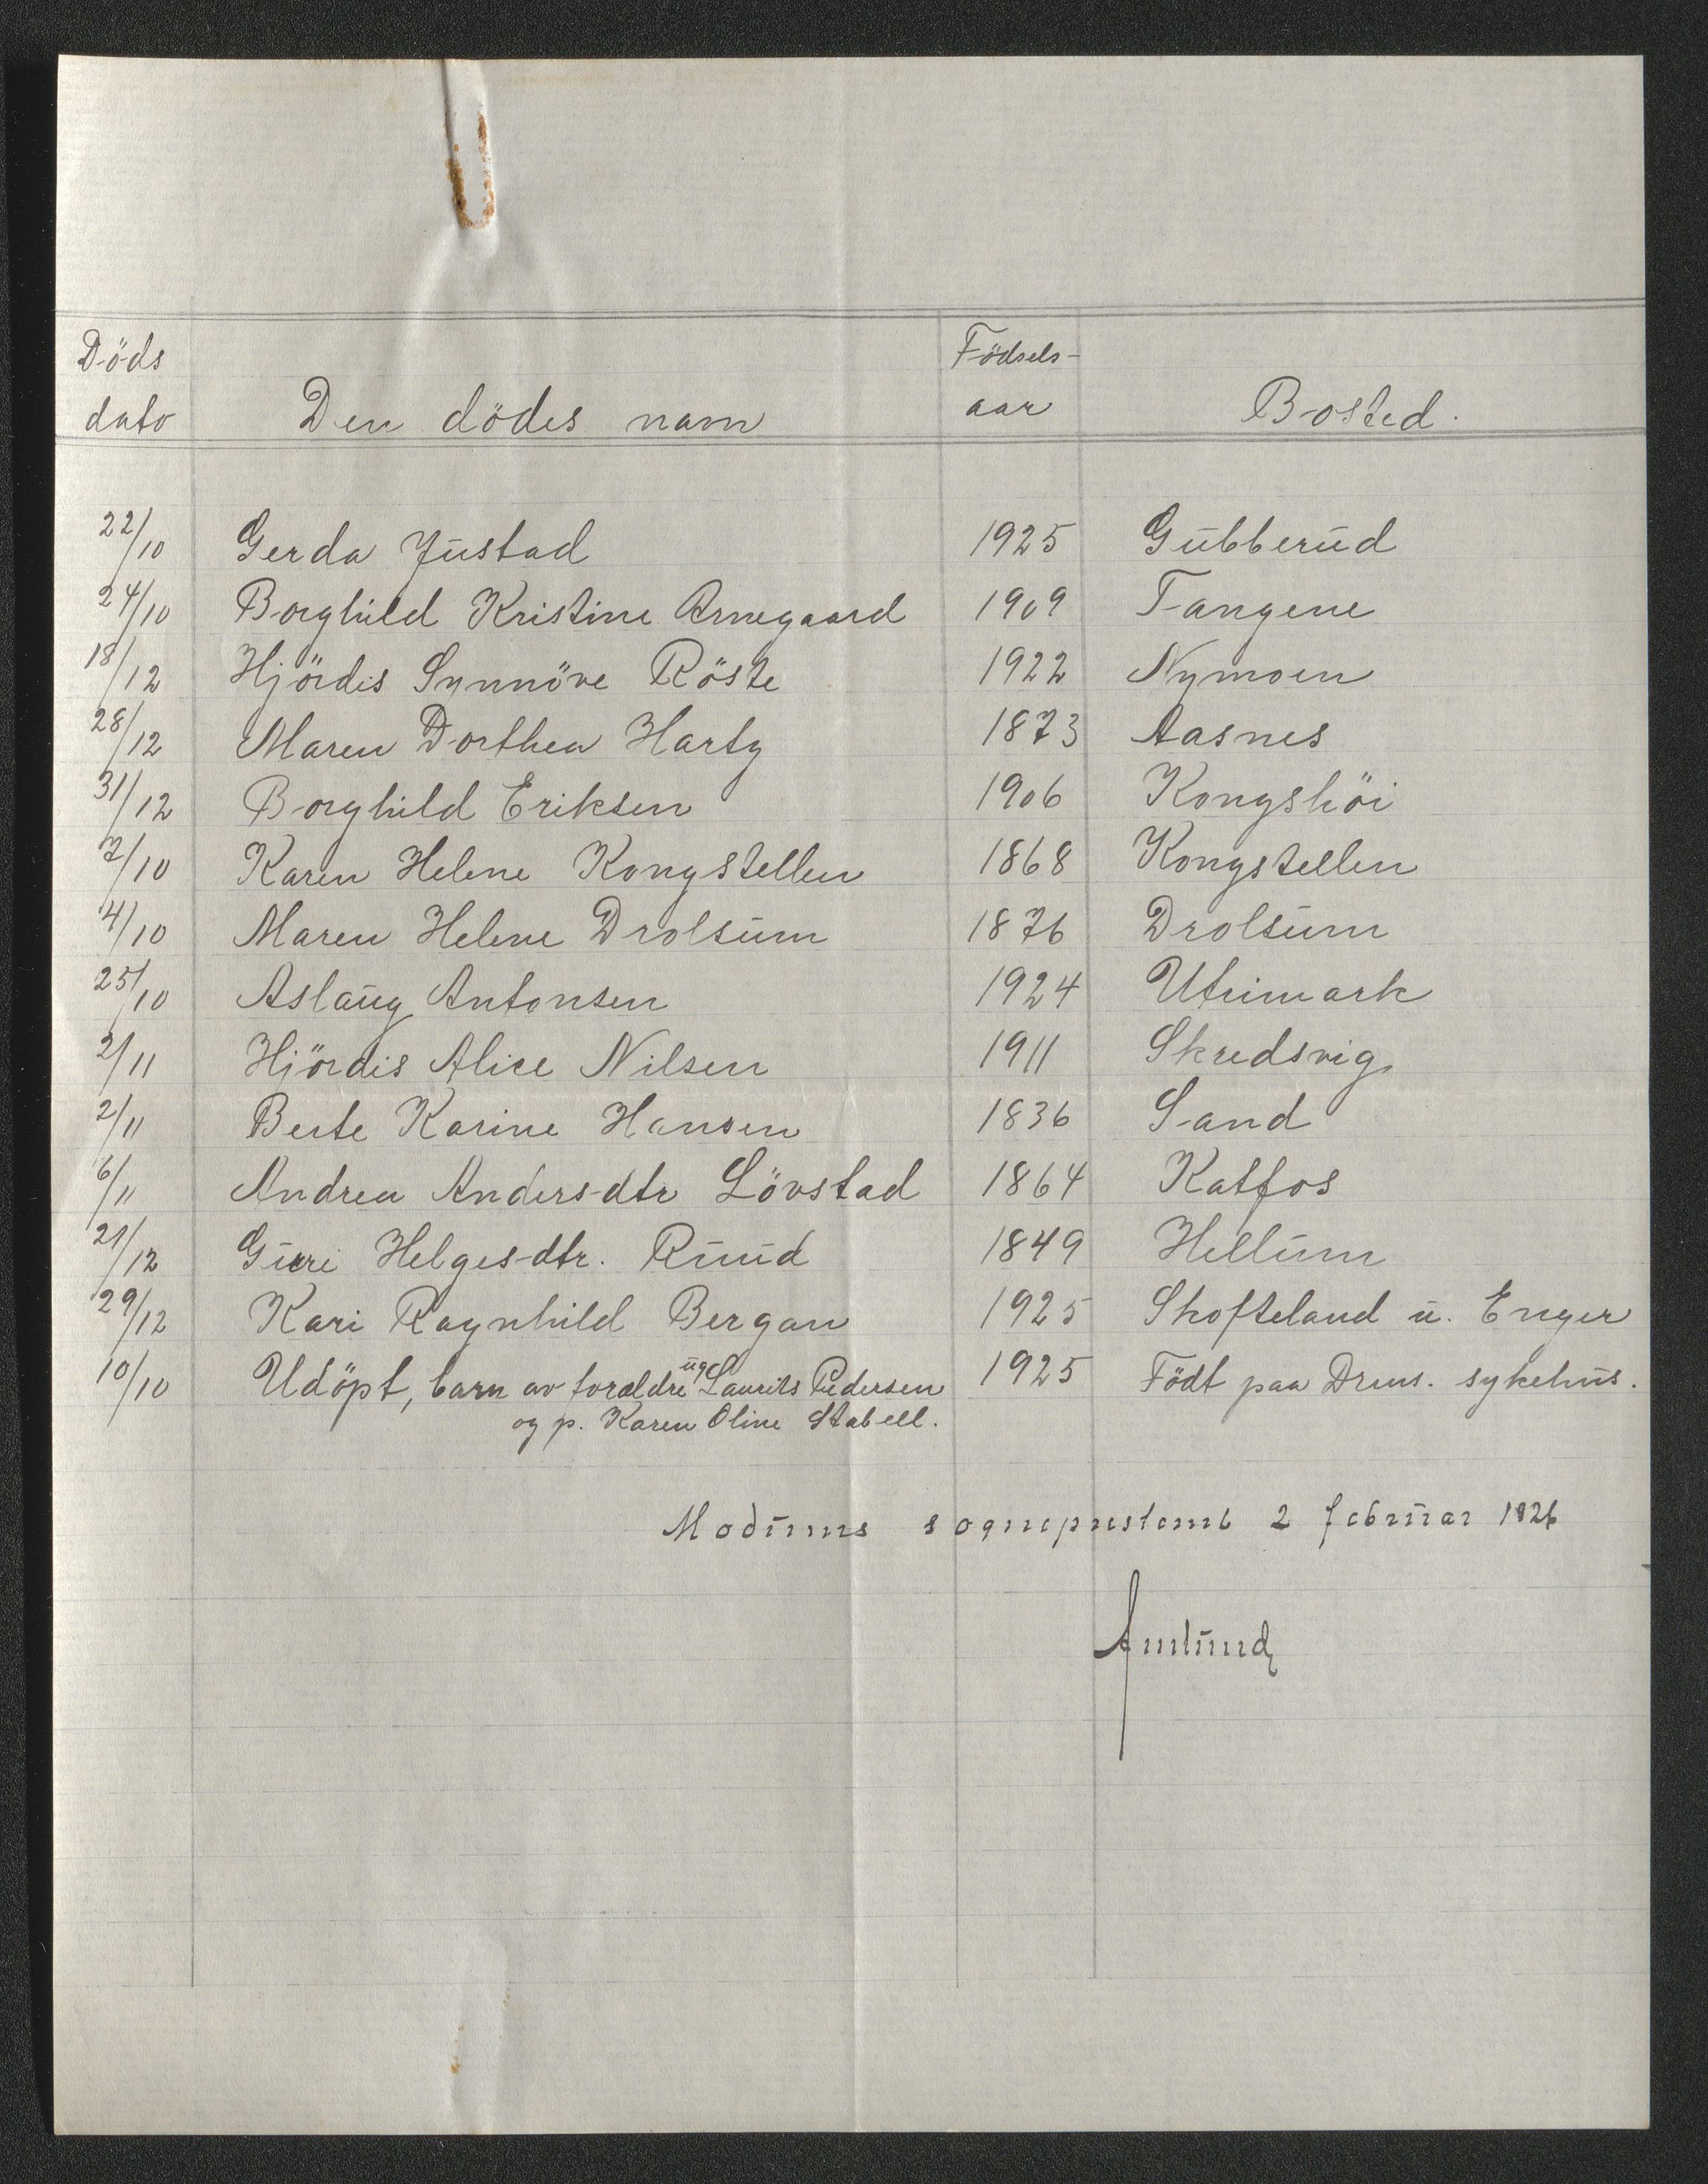 Döds Födsels-
dato Den dödes navn aar Bosted.
22/10 Gerda Justad 1925 Gubberud
24/10 Borghild Kristine Arnegaard 1909 Tangene
18/12 Hjördis Synnöve Röste 1922 Nymoen
28/12 Maren Dorthea Hartz 1873 Aasnes
31/12 Borghild Eriksen 1906 Kongshöi
7/10 Karen Helene Kongstellen 1868 Kongstellen
4/10 Maren Helene Drolsum 1876 Drolsum
25/10 Aslaug Antonsen 1924 Utrimark
2/11 Hjördis Alice Nilsen 1911 Skredsvig
2/11 Berte Karine Hansen 1836 Sand
6/11 Andrea Anders-dtr Lövstad 1864 Katfos
21/12 Guri Helges-dtr. Ruud 1849 Hellum
29/12 Kari Ragnhild Bergan 1925 Skofteland u. Enger
10/10 Udöpt, barn av foraldre ug. Laurits Pedersen 1925 Födt paa Drms. sykehus.
og p. Karen Oline Stabell.
Modums sogneprestemb 2 februar 1926
Amlund